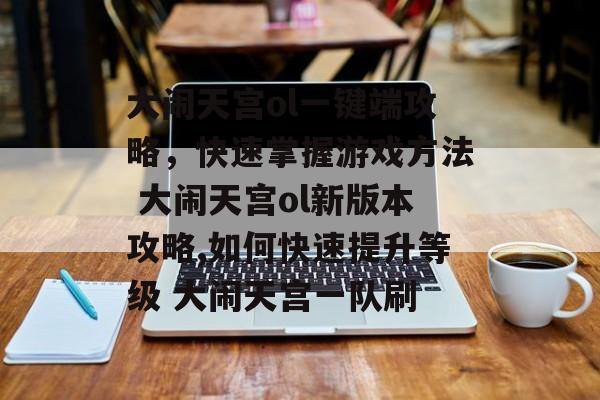 大闹天宫ol一键端攻
略，快速掌握游戏方法
大闹天宫ol新版本
攻略,如何快速提升等
级 大闹天宫一队刷